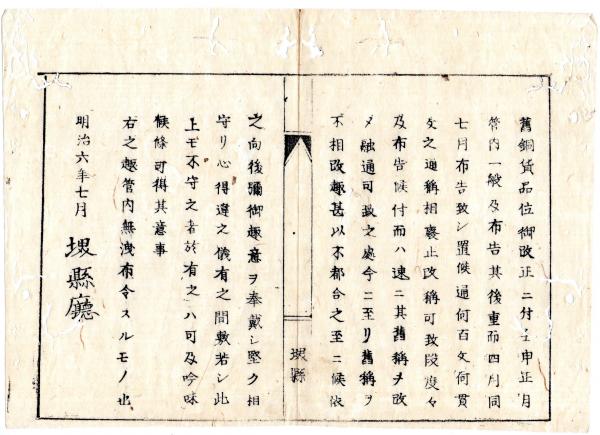 舊銅貨品位御改正ニ付壬申正月
管内一般及布告其後重而四月同
七月布告致シ置候通何百文何貫
文之通稱相褱止改稱可致段度々
及布告候付而ハ速ニ其舊稱ヲ改
メ融通可致之處今ニ至リ舊稱ヲ
不相改趣甚以不都合之至ニ候依
堺縣
之向後彌御趣意ヲ奉戴シ堅ク相
守リ心得違之儀有之間敷若シ此
上モ不守之者於有之ハ可及吟味
候條可得其意事
右之趣管内無洩布令スルモノ也
明治六年七月
堺縣廳